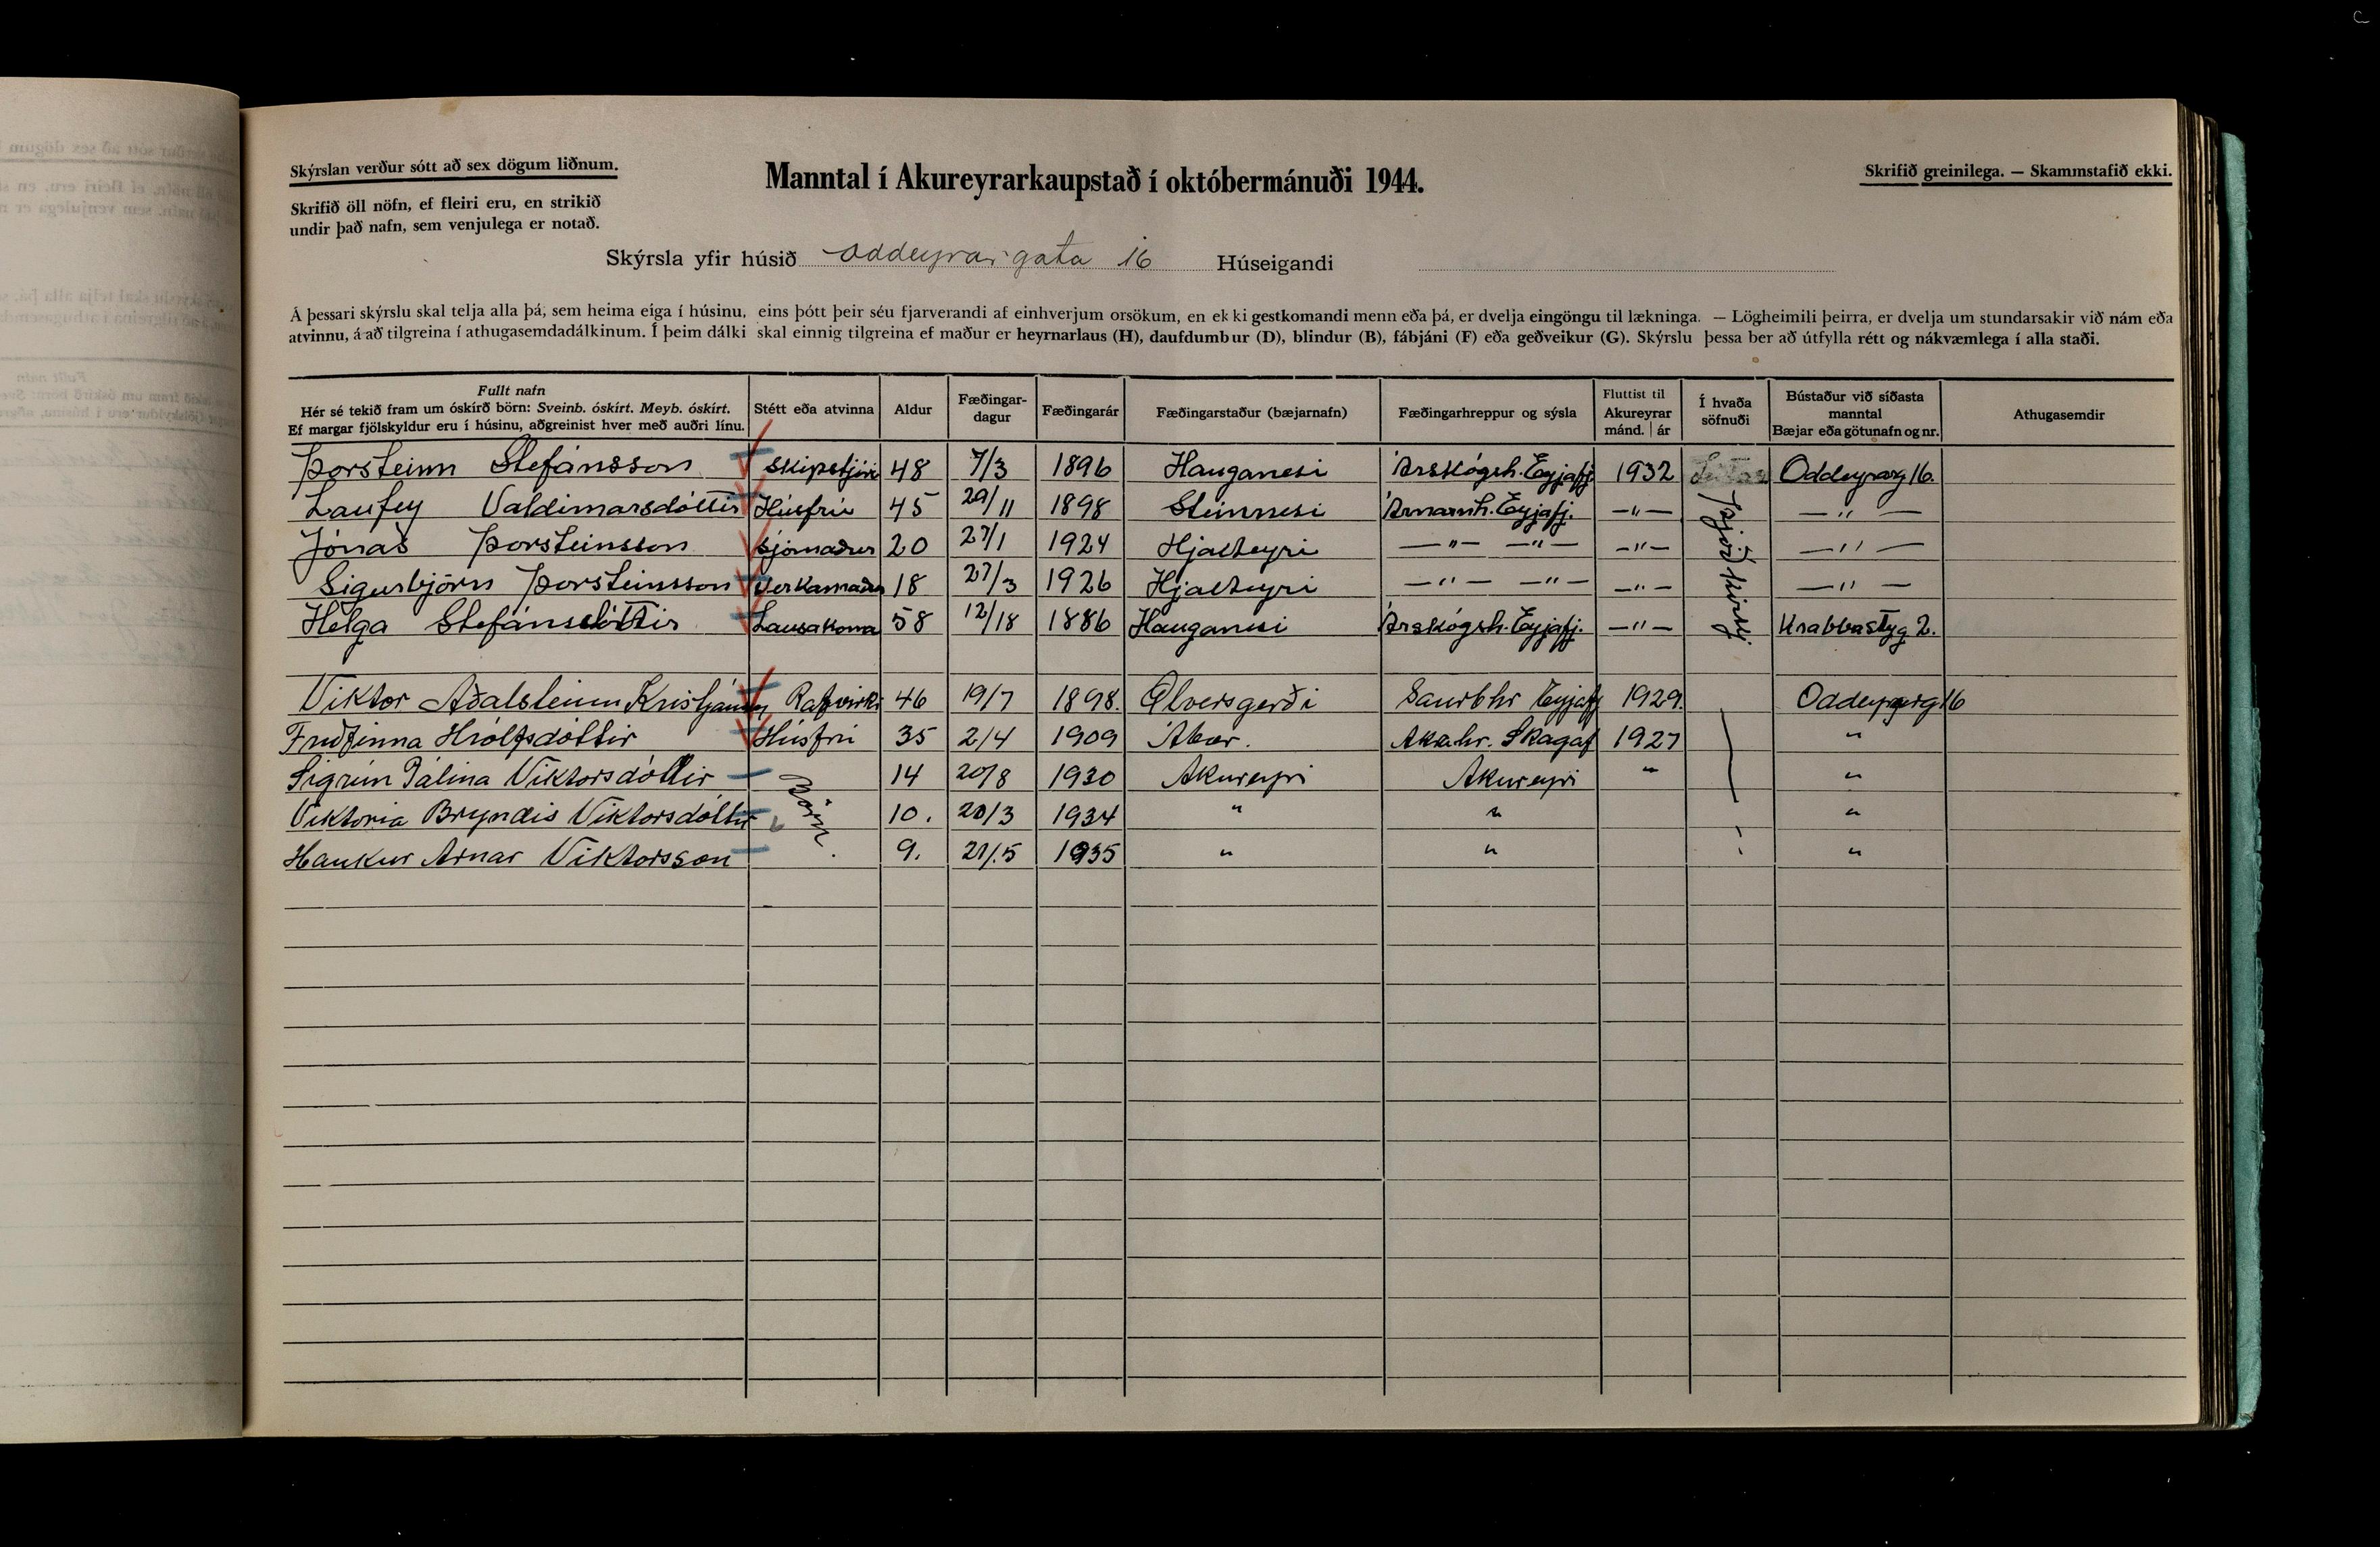 Skýrslan verður sótt að sex dögum liðnum.
Manntal í Akureyrarkaupstað í októbermánuði 1944.
Skrifið greinilega. — Skammstafið ekki.
Skrifið öll nöfn, ef fleiri eru, en strikið
undir það nafn, sem venjulega er notað.
Skýrsla yfir húsið Oddeyrargata 16 Húseigandi
Á þessari skýrslu skal telja alla þá, sem heima eiga í húsinu, eins þótt þeir séu fjarverandi af einhverjum orsökum, en ekki gestkomandi menn eða þá, er dvelja eingöngu til lækninga. — Lögheimili þeirra, er dvelja um stundarsakir við nám eða
atvinnu, á að tilgreina í athugasemdadálkinum. Í þeim dálki skal einnig tilgreina ef maður er heyrnarlaus (H), daufdumbur (D), blindur (B), fábjáni (F) eða geðveikur (G). Skýrslu þessa ber að útfylla rétt og nákvæmlega í alla staði.
Fullt nafn
Hér sé tekið fram um óskírð börn: Sveinb. óskírt. Meyb. óskírt.
Ef margar fjölskyldur eru í húsinu, aðgreinist hver með auðri línu.
Stétt eða atvinna
Aldur
Fæðingar-
dagur
Fæðingarár
Fæðingarstaður (bæjarnafn)
Fæðingarhreppur og sýsla
Fluttist til
Akureyrar
mánd. | ár
Í hvaða
söfnuði
Bústaður við síðasta
manntal
Bæjar eða götunafn og nr.
Athugasemdir
Þorsteinn Stefánsson Skipstjóri 48 7/3 1896 Hauganesi Árskógsh. Eyjafj. 1932 Oddeyrarg 16.
Laufey Valdimarsdóttir Húsfrú 45 29/11 1898 Steinnesi Arnarnh. Eyjafj. —"— —"—
Jónas Þorsteinsson Sjómaður 20 27/1 1924 Hjalteyri —"— —"— —"— —"—
Sigurbjörn Þorsteinsson Verkamaður 18 27/3 1926 Hjalteyri —"— —"— —"— —"—
Helga Stefánsdóttir Lausakona 58 12/18 1886 Hauganesi Árskógsh. Eyjafj. —"— Krabbastyg 2.
Þjóðkirkj
Viktor Aðalsteinn Kristjánsson Rafvirki 46 19/7 1898. Ölversgerði Saurbhr Eyjafj 1929. Oddeyrarg 16
Friðfinna Hrólfsdóttir Húsfrú 35 2/4 1909 Ábær. Akrahr. Skagaf 1927 "
Sigrún Pálina Viktorsdóttir 14 20/8 1930 Akureyri Akureyri " "
Viktoria Bryndis Viktorsdóttir 10. 20/3 1934 " " "
Haukur Arnar Viktorsson 9. 21/.5 1935 " " "
Börn.